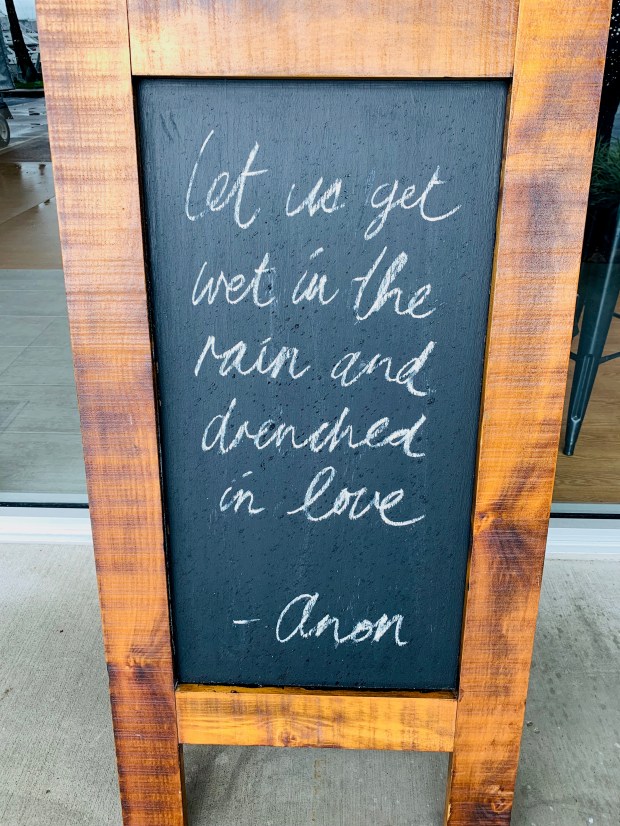 Let us get
wet in the
rain and
drenched
in love
- Anon